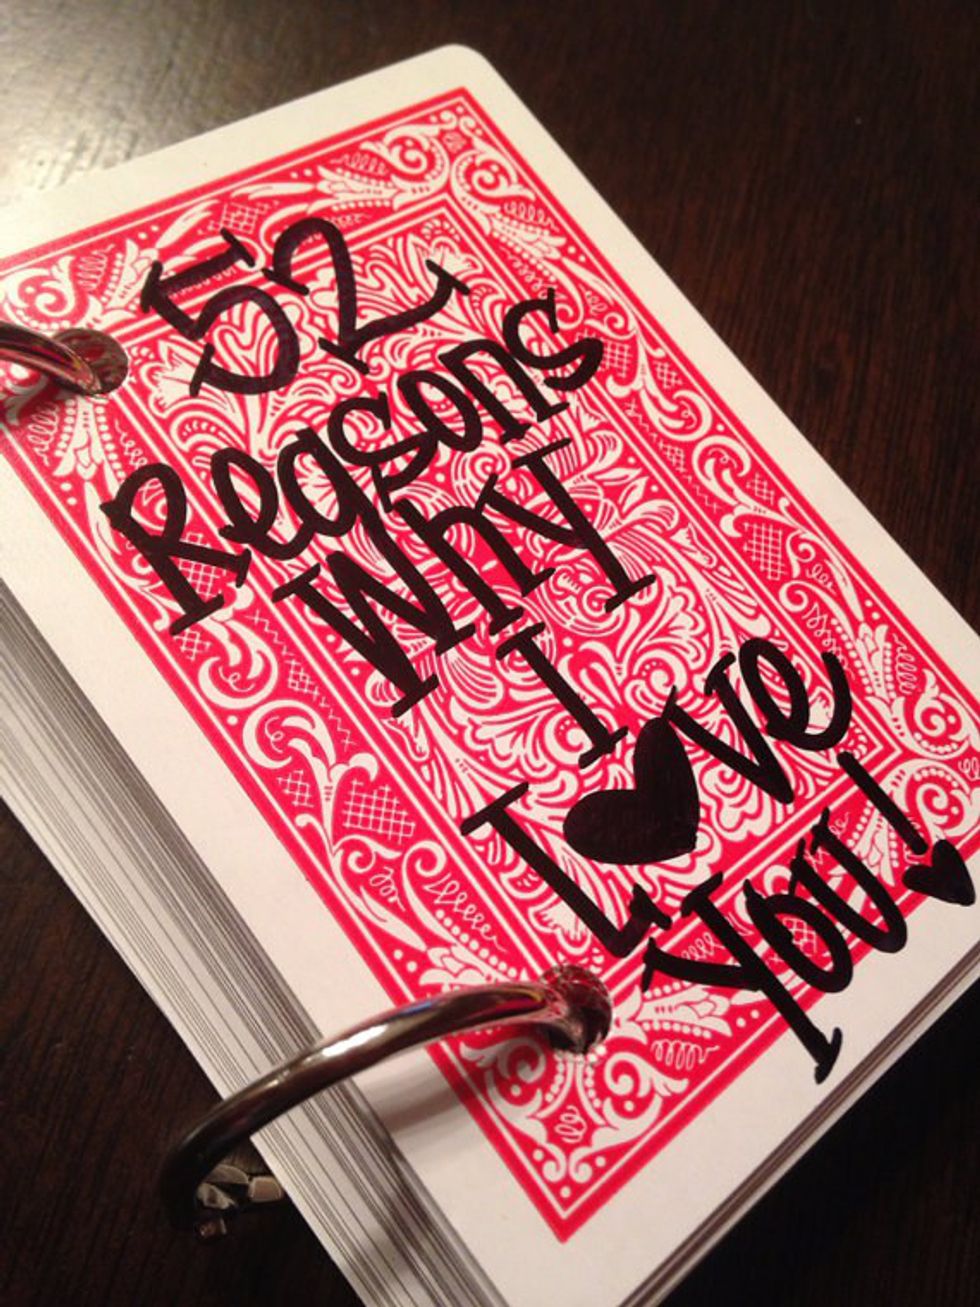 52
Reasons
Why
I
L♥ve
You!